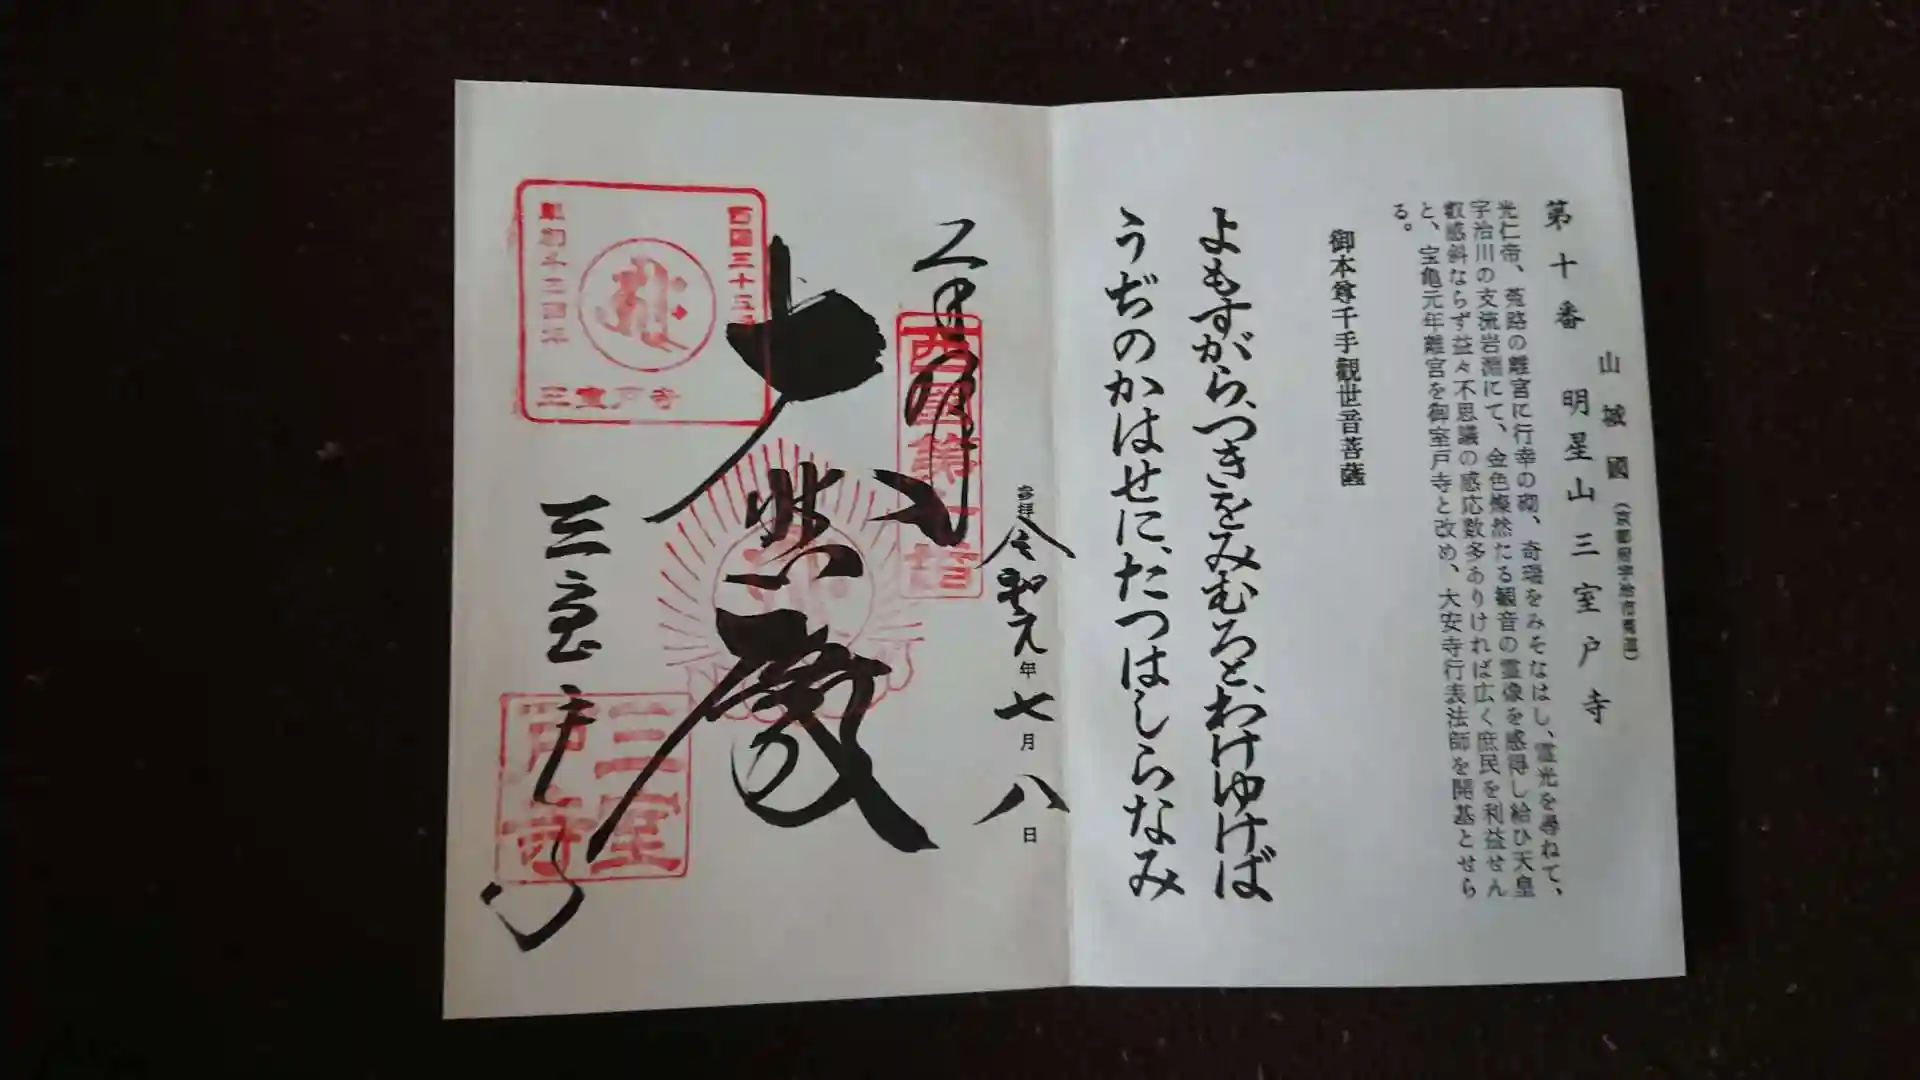 山城國(京都府宇治市莵道)
第十番 明星山三室戸寺
光仁帝、莵路の離宮に行幸の砌、奇瑞をみそなはし、霊光を尋ねて、
宇治川の支流岩淵にて、金色燦然たる観音の霊像を感得し給ひ天皇
叡感斜ならず益々不思議の感応数多ありければ広く庶民を利益せん
と、宝亀元年離宮を御室戸寺と改め、大安寺行表法師を開基とせら
る。
御本尊千手觀世音菩薩
よもすがら、つきをみむろと、わけゆけば
うぢのかはせに、たつはしらなみ
参拝 令和元年七月八日
西国第十番
大悲殿
西国三十三所
草創千三百年
三室戸寺
三室戸寺
三室戸寺